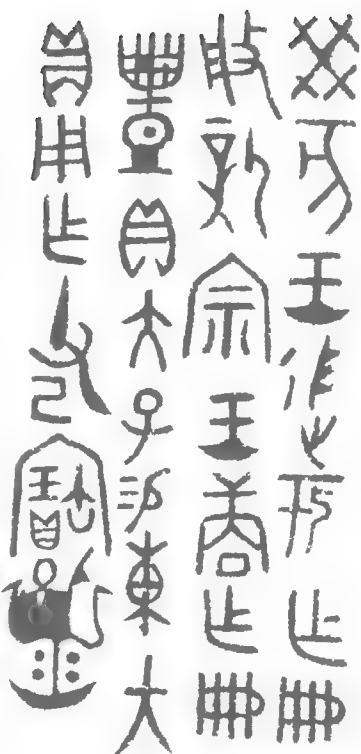 癸亥王𢓊于乍册
般新宗王商乍册
豐貝大子易東大
貝用乍父己寶